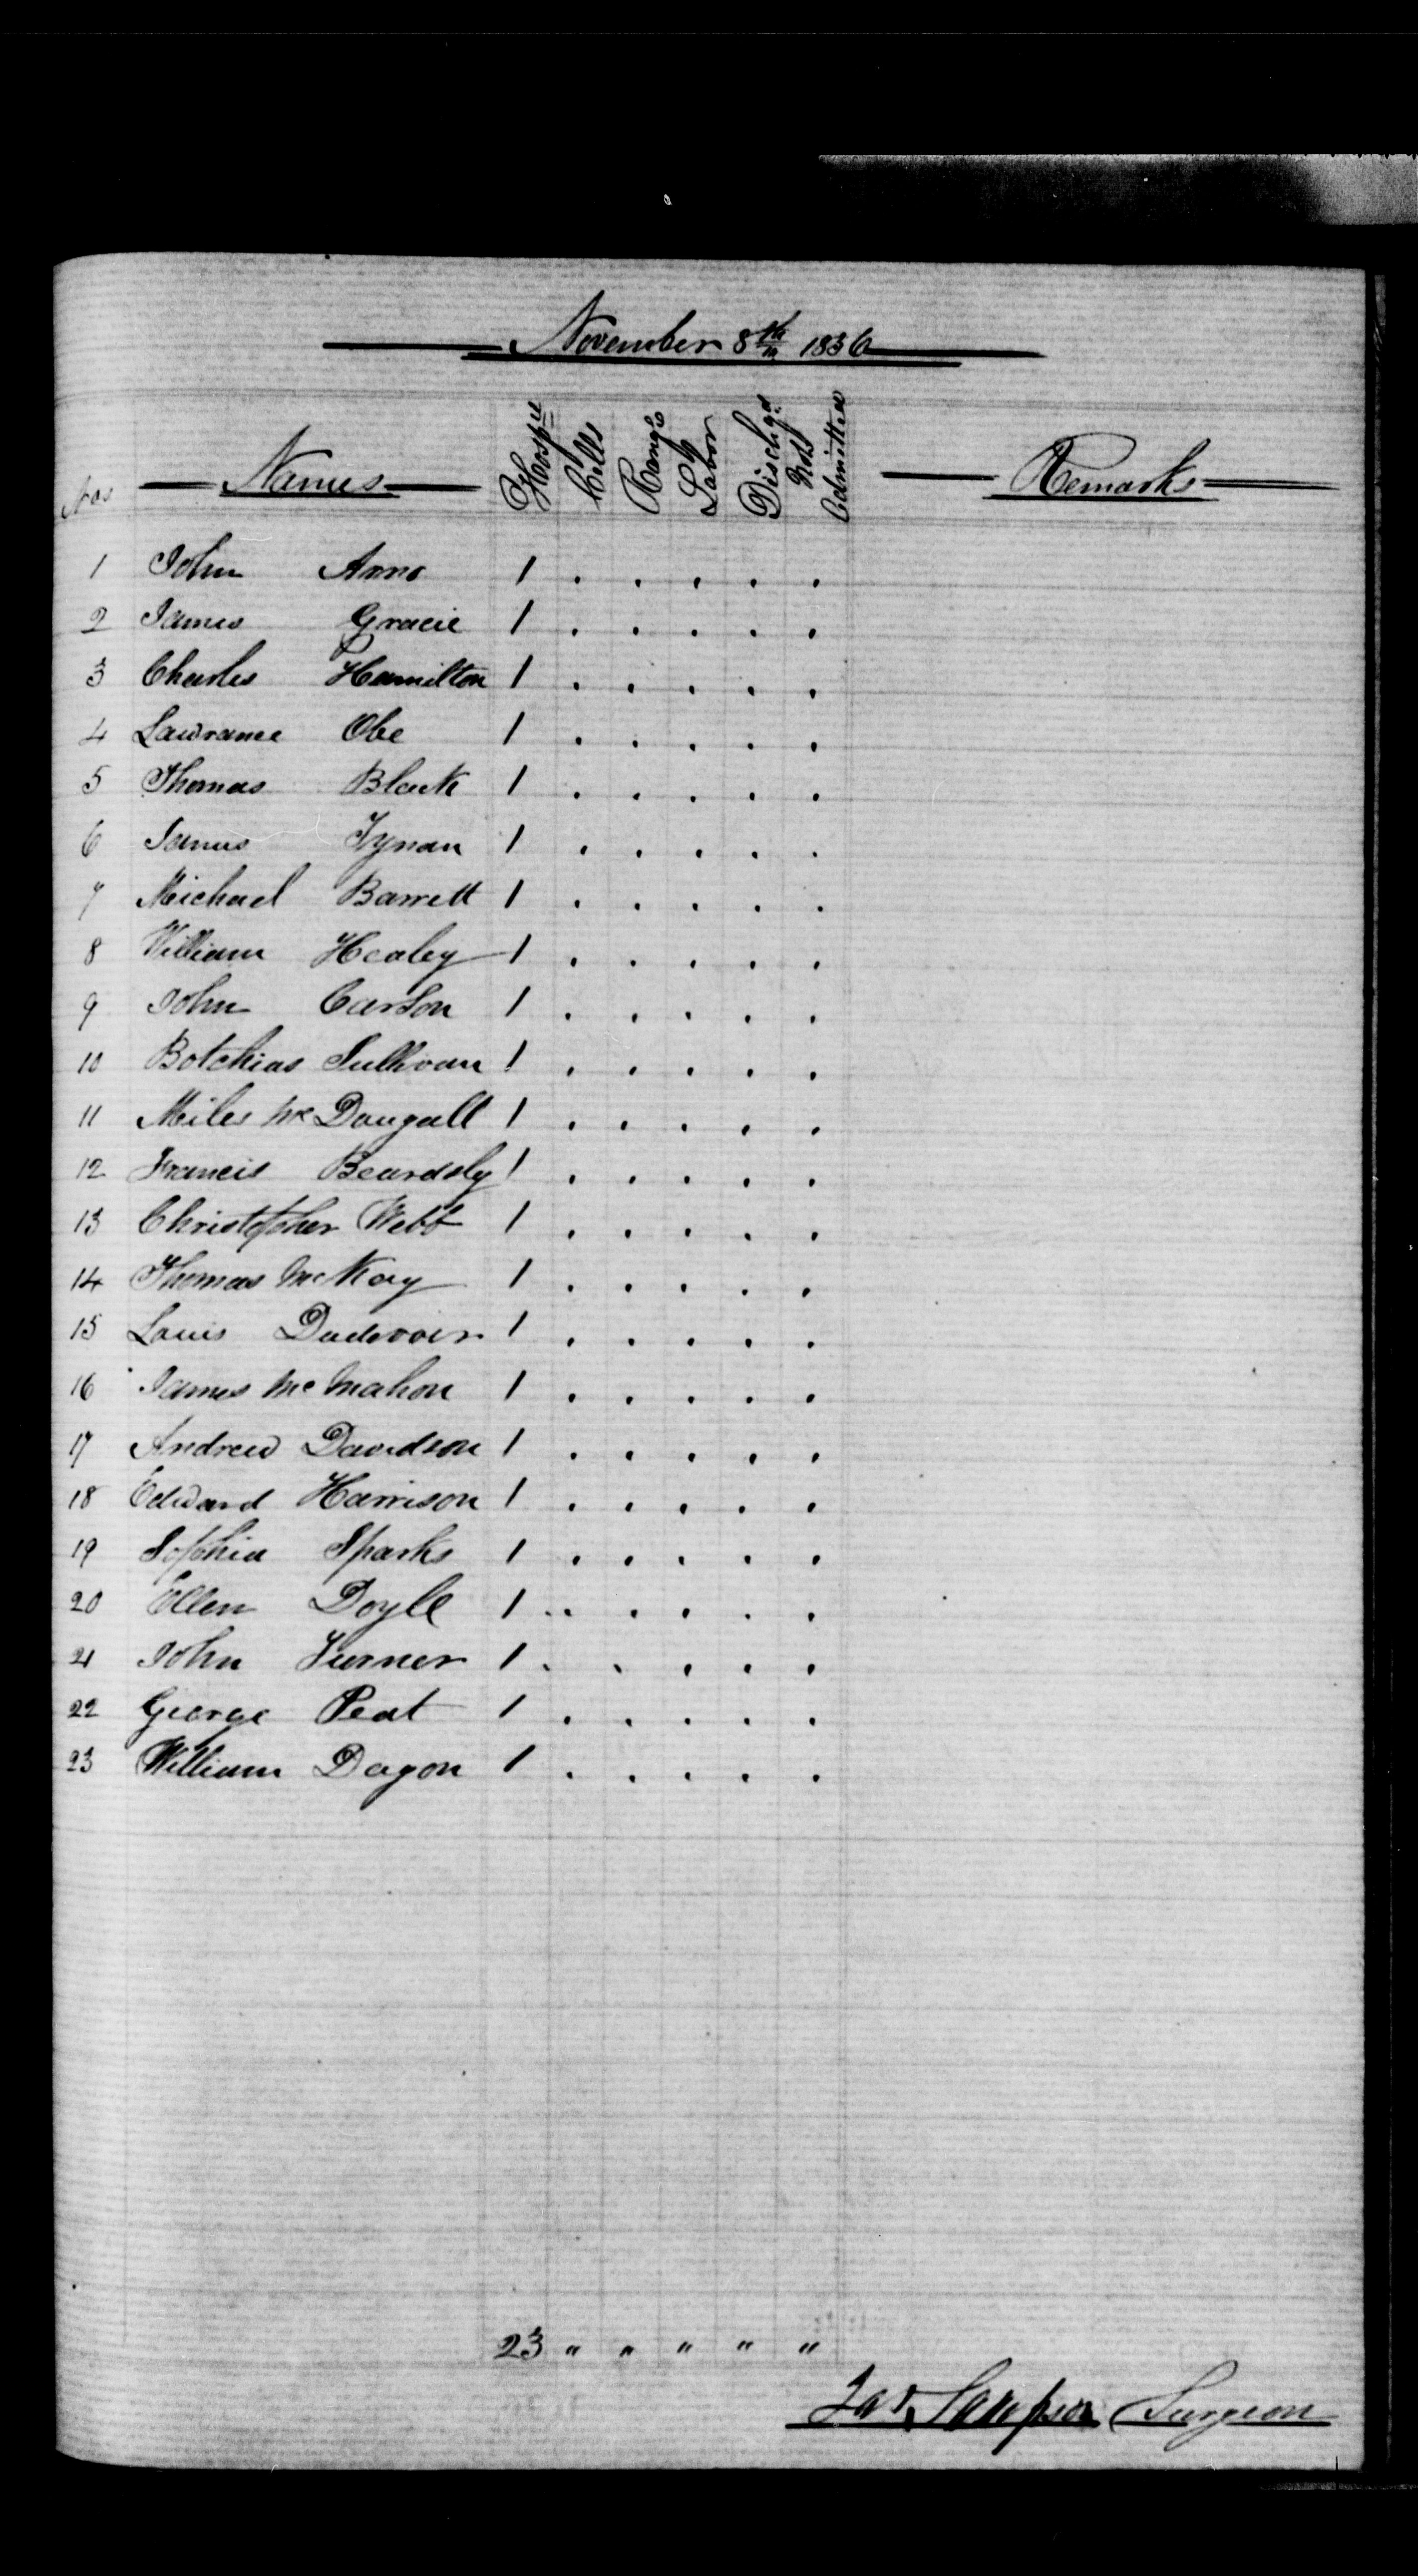 November 8th 1836
Nos Names Hospl Cells Rangs Labor Dischgd Not Admitted Remarks
1 John Anno 1 . . . . .
2 James Gracie 1 . . . . .
3 Charles Hamilton 1 . . . . .
4 Lawrance Obe 1 . . . . .
5 Thomas Black 1 . . . . .
6 James Tynan 1 . . . . .
7 Michael Barrett 1 . . . . .
8 William Healey 1 . . . . .
9 John Carson 1 . . . . .
10 Botchias Sullivan 1 . . . . .
11 Miles Mc Dougall 1 . . . . .
12 Francis Beardsly 1 . . . . .
13 Christopher Webb 1 . . . . .
14 Thomas McKay 1 . . . . .
15 Louis Dudevoir 1 . . . . .
16 James Mc Mahon 1 . . . . .
17 Andrew Davidson 1 . . . . .
18 Edward Harrison 1 . . . . .
19 Sophia Sparks 1 . . . . .
20 Ellen Doyle 1 . . . . . .
21 John Turner 1 . . . . .
22 George Peat 1 . . . . .
23 William Dagon 1 . . . . .
23 " " " " "
Jas. Sampson Surgeon